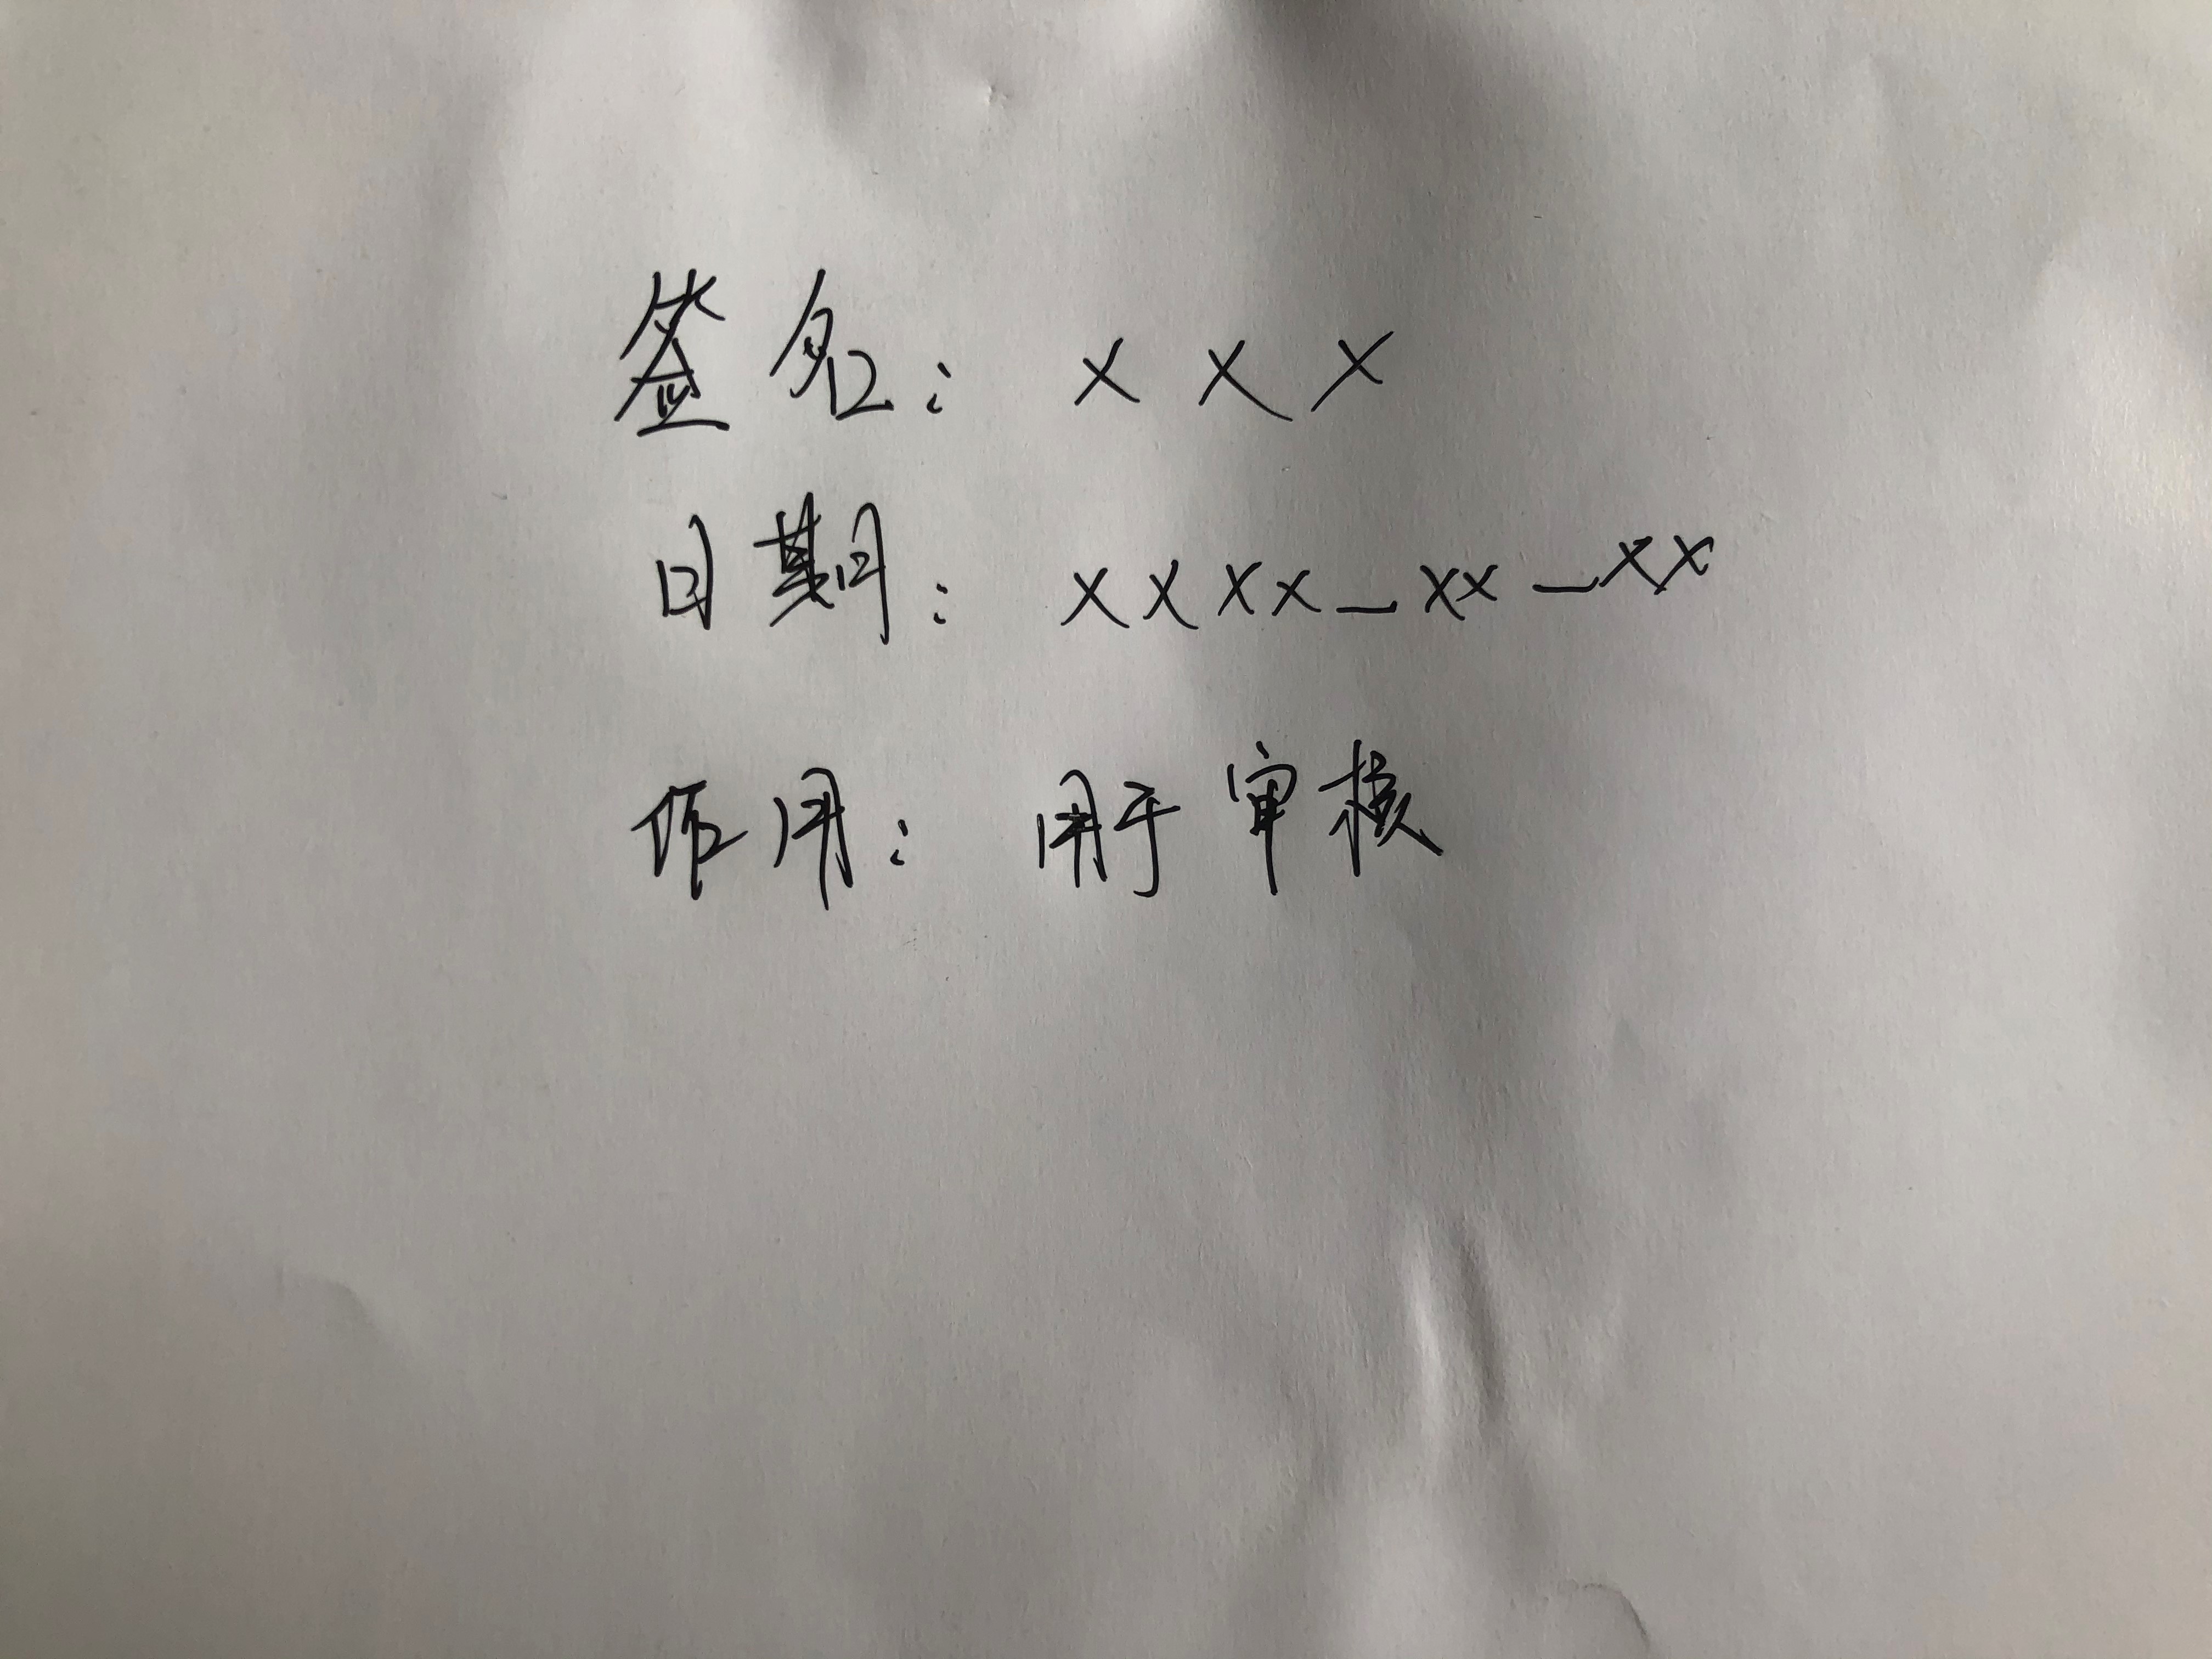 签名：x x x
日期：xxxx-xx-xx
作用：用于审核